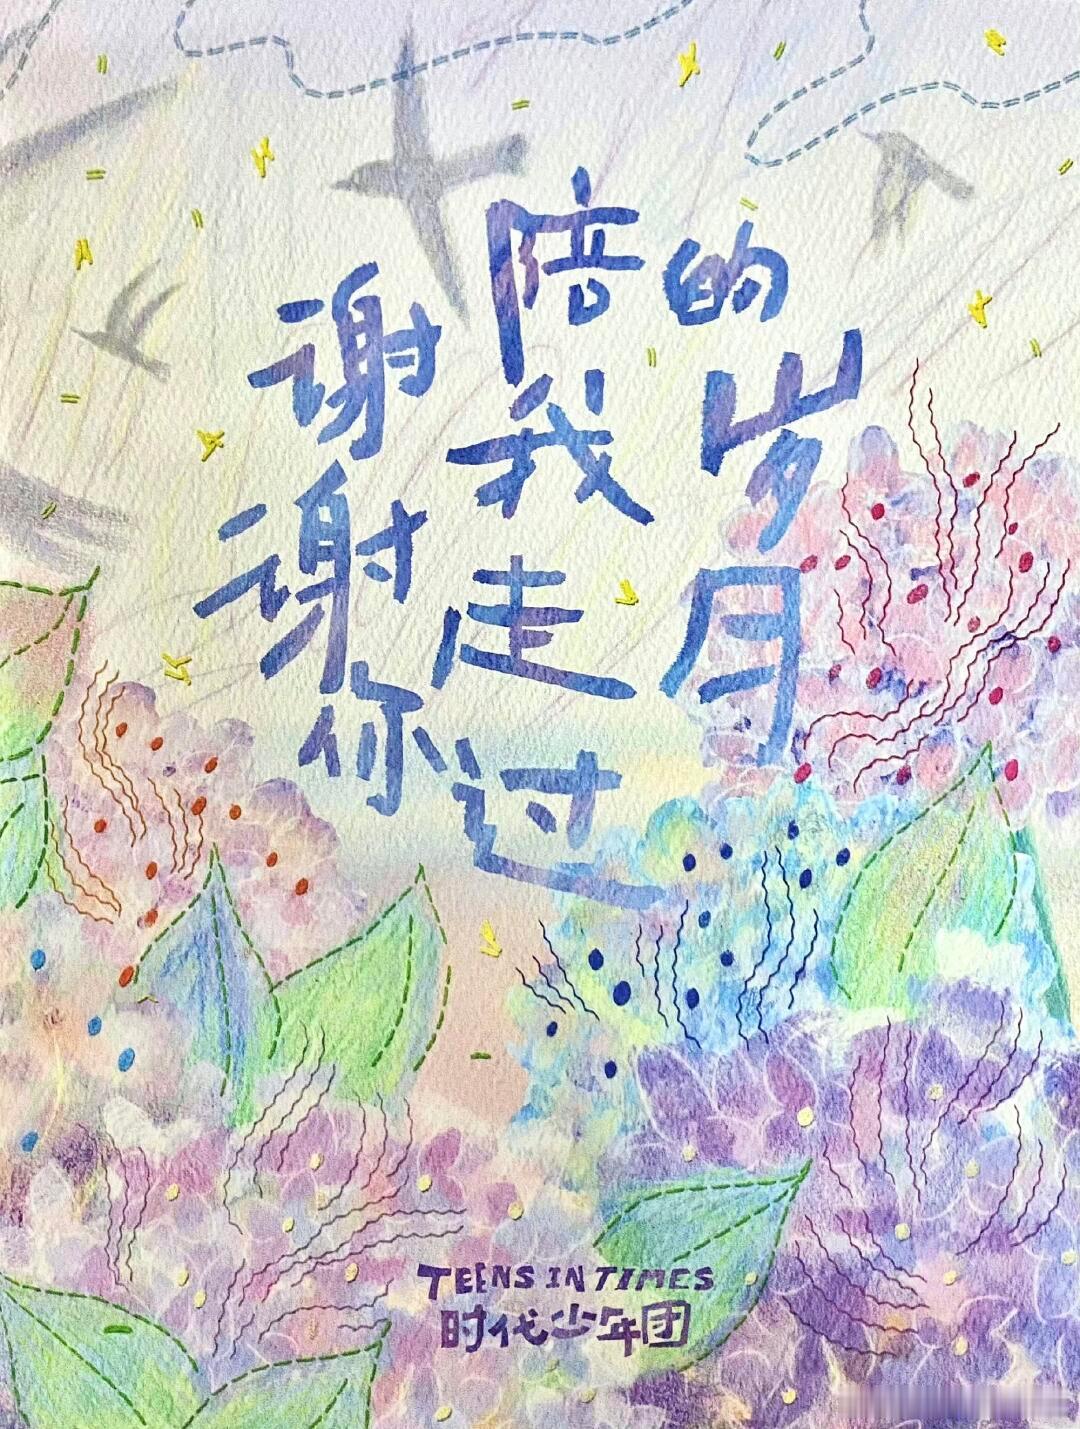 谢谢你
陪我走过
的岁月
TEENS IN TIMES
时代少年团